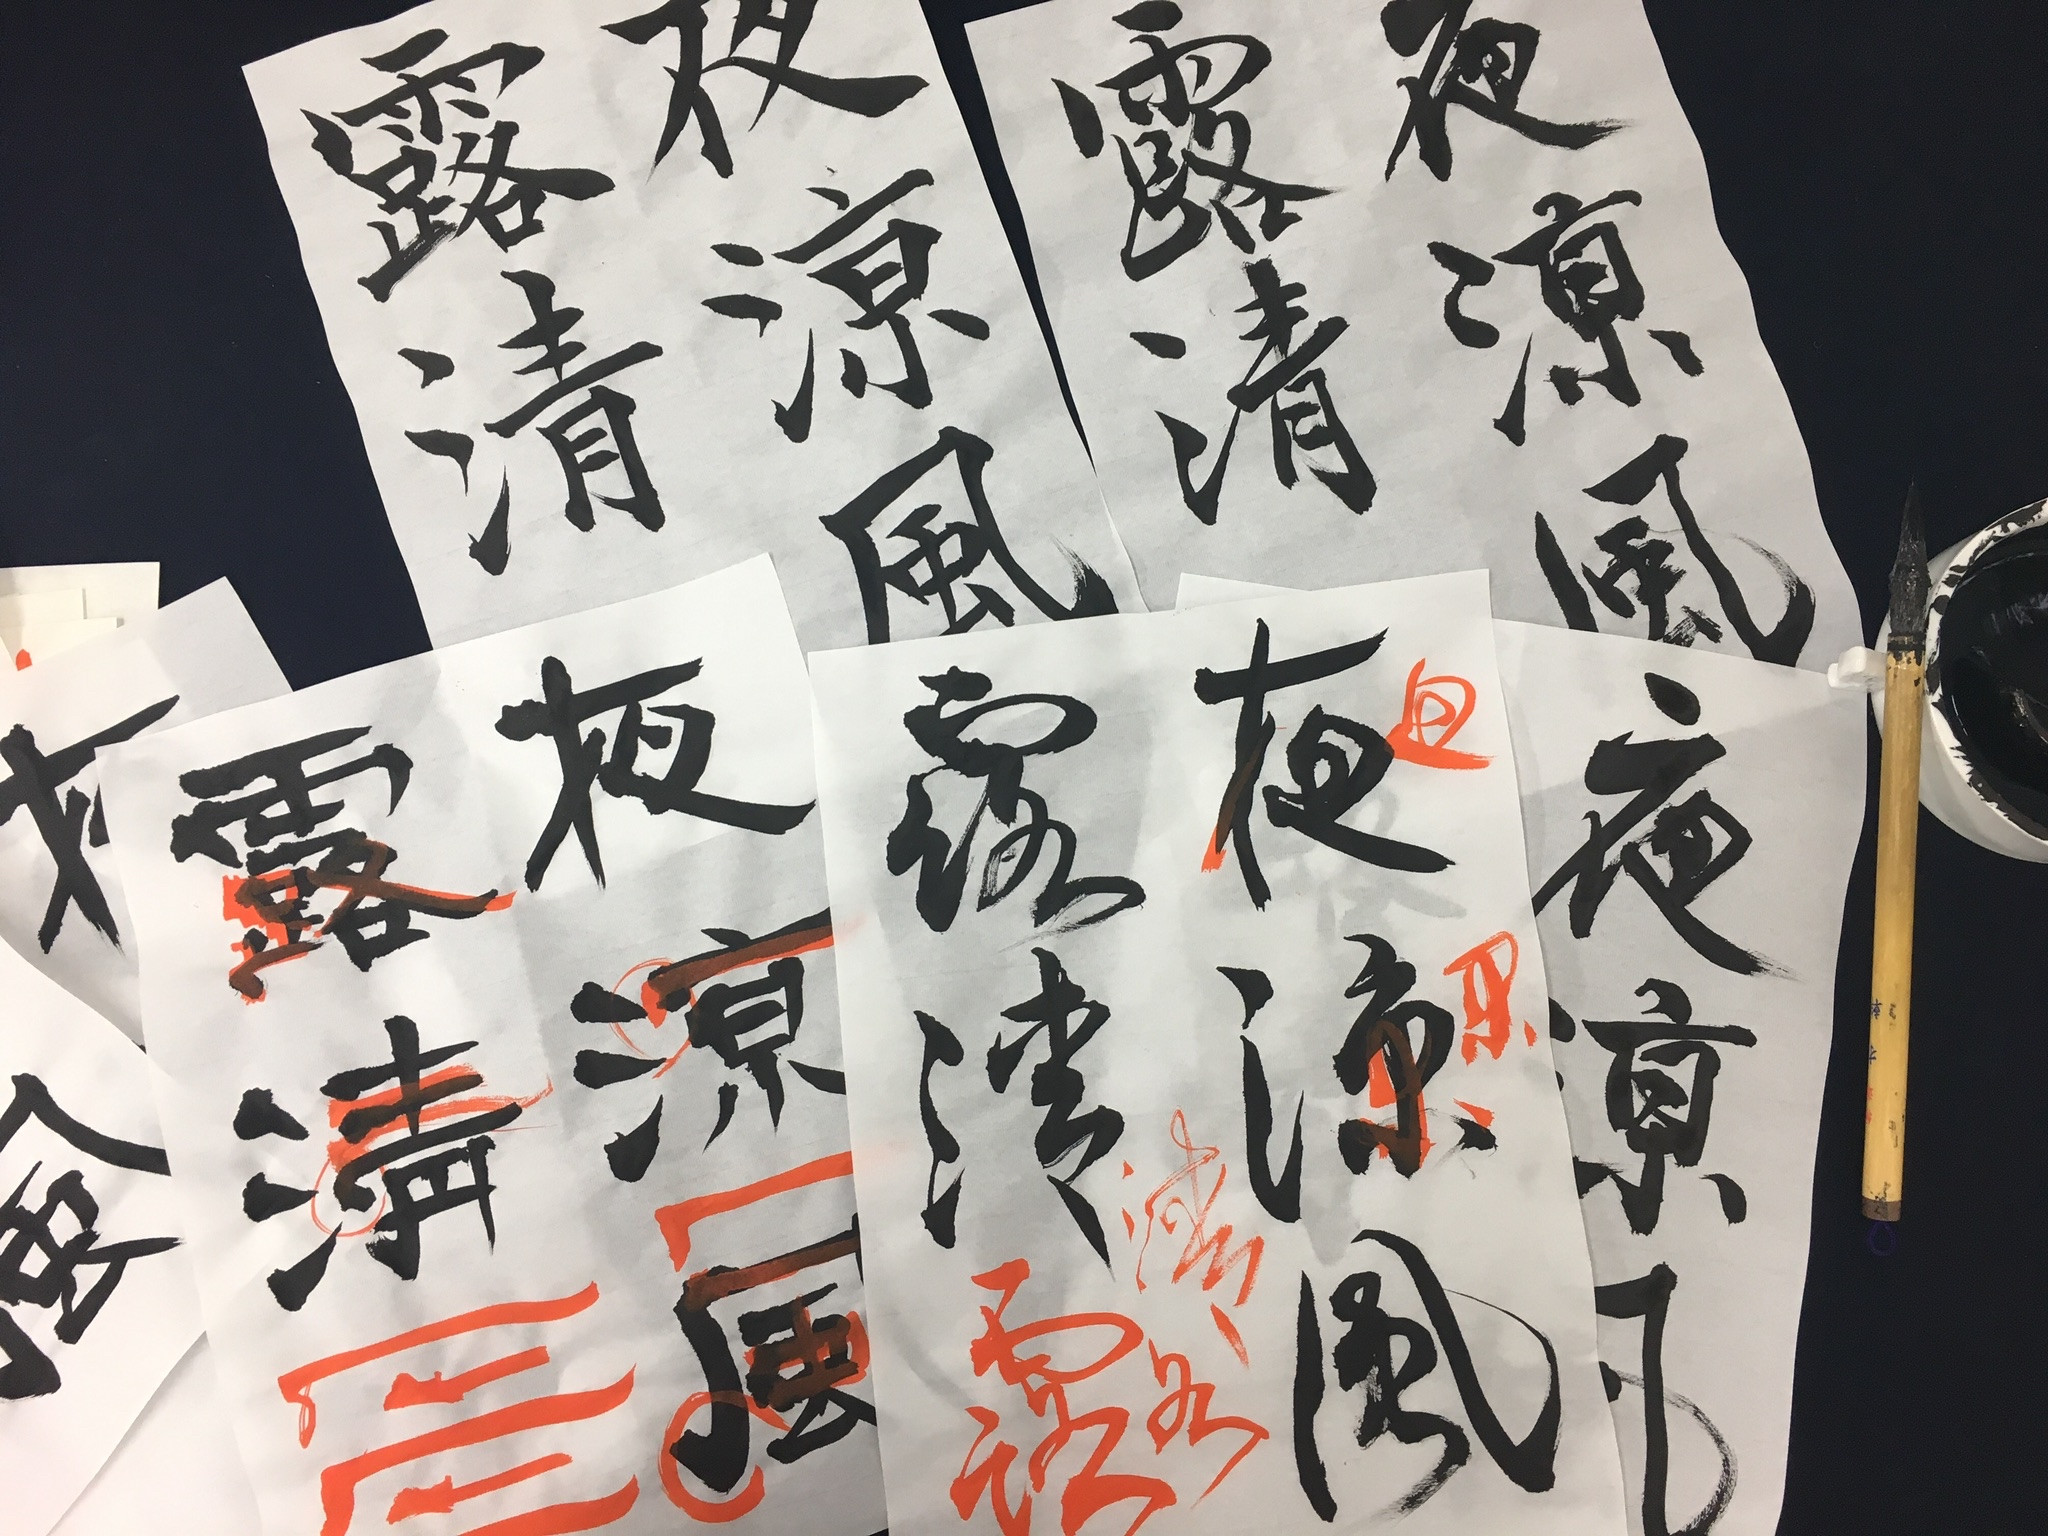 夜涼風
露清
夜涼風
露清
風
夜涼風
露清
夜涼風
露清
清
露
夜涼